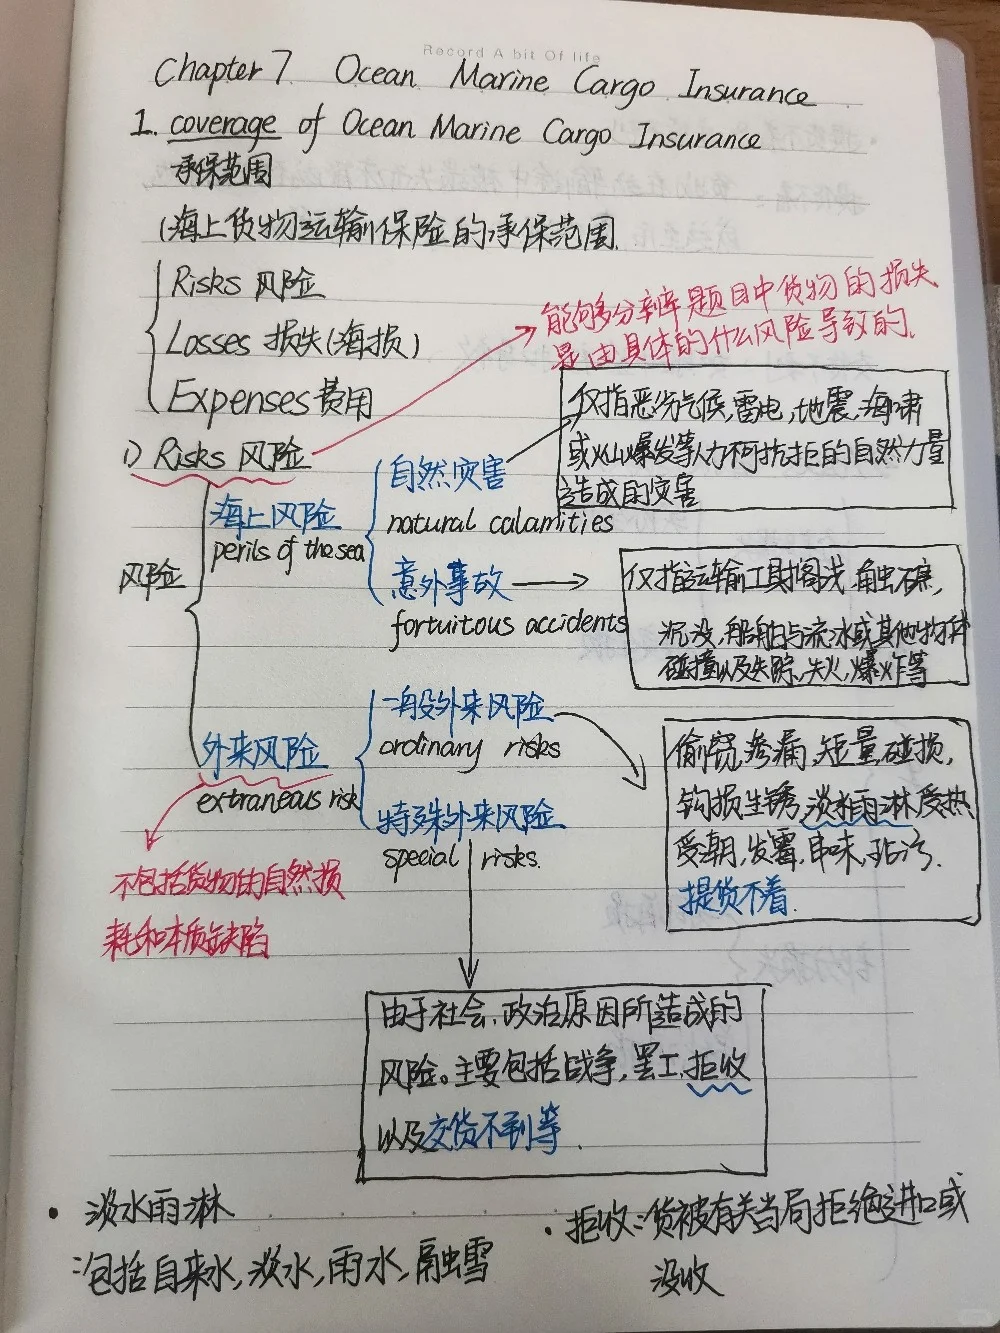 Record A bit Of life
Chapter 7 Ocean Marine Cargo Insurance
1. coverage of Ocean Marine Cargo Insurance
承保范围
(海上货物运输保险的承保范围
Risks 风险
Losses 损失(海损)
Expenses 费用
能够分辨题目中货物的损失
是由具体的什么风险导致的.
1) Risks 风险
风险
海上风险
perils of the sea
自然灾害
natural calamities
仅指恶劣气候,雷电,地震,海啸
或火山爆发等人力不可抗拒的自然力量
造成的灾害
意外事故
fortuitous accidents
仅指运输工具搁浅,触礁,
沉没,船舶与流冰或其他物体
碰撞以及失踪,失火,爆炸等
外来风险
extraneous risk
不包括货物的自然损
耗和本质缺陷
一般外来风险
ordinary risks
偷窃,渗漏,短量,碰损,
钩损,生锈,淡水雨淋,受热
受潮,发霉,串味,玷污.
提货不着.
特殊外来风险
special risks.
由于社会、政治原因所造成的
风险。主要包括战争,罢工,拒收
以及交货不到等.
• 淡水雨淋
:包括自来水,淡水,雨水,融雪
• 拒收:货被有关当局拒绝进口或
没收